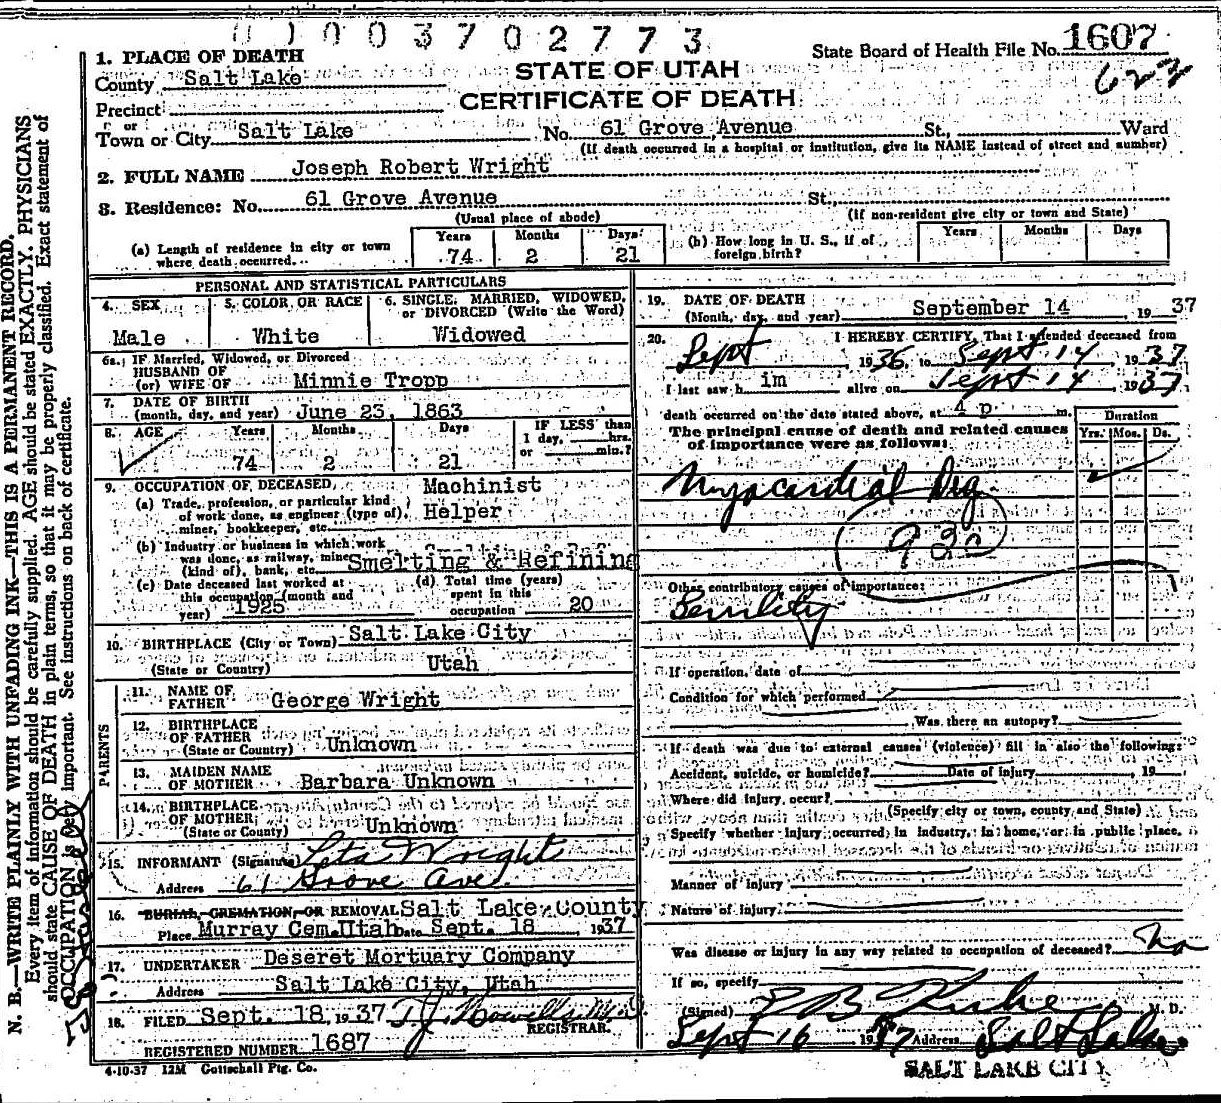 01003702773
State Board of Health File No. 1607
622
1. PLACE OF DEATH
County Salt Lake
STATE OF UTAH
CERTIFICATE OF DEATH
Precinct
or
Town or City Salt Lake No. 61 Grove Avenue St., Ward
(If death occurred in a hospital or institution, give its NAME instead of street and number)
2. FULL NAME Joseph Robert Wright
3. Residence: No. 61 Grove Avenue St.,
(Usual place of abode) (If non-resident give city or town and State)
(a) Length of residence in city or town where death occurred. Years 74 Months 2 Days 21
(b) How long in U. S., if of foreign birth? Years Months Days
PERSONAL AND STATISTICAL PARTICULARS
4. SEX Male
5. COLOR OR RACE White
6. SINGLE, MARRIED, WIDOWED, or DIVORCED (Write the Word) Widowed
6a. IF Married, Widowed, or Divorced
HUSBAND OF
(or) WIFE OF Minnie Tropp
7. DATE OF BIRTH
(month, day, and year) June 23, 1863
8. AGE Years 74 Months 2 Days 21 IF LESS than 1 day, hrs. or min.?
9. OCCUPATION OF DECEASED
(a) Trade, profession, or particular kind of work done, as engineer (type of), miner, bookkeeper, etc. Machinist Helper
(b) Industry or business in which work was done, as railway, mine (kind of), bank, etc. Smelting & Refining
(c) Date deceased last worked at this occupation (month and year) 1925
(d) Total time (years) spent in this occupation 20
10. BIRTHPLACE (City or Town) Salt Lake City
(State or Country) Utah
PARENTS
11. NAME OF FATHER George Wright
12. BIRTHPLACE OF FATHER (State or Country) Unknown
13. MAIDEN NAME OF MOTHER Barbara Unknown
14. BIRTHPLACE OF MOTHER (State or Country) Unknown
15. INFORMANT (Signature) Leta Wright
Address 61 Grove Ave.
16. BURIAL, CREMATION, OR REMOVAL Salt Lake County
Place Murray Cem. Utah Date Sept. 18, 1937
17. UNDERTAKER Deseret Mortuary Company
Address Salt Lake City, Utah
18. FILED Sept. 18, 1937 T. J. Howells M.D.
REGISTRAR.
REGISTERED NUMBER 1687
4-10-37 12M Gottschall Ptg. Co.
19. DATE OF DEATH
(Month, day, and year) September 14 1937
20. I HEREBY CERTIFY, That I attended deceased from
Sept 1936, to Sept 14 1937
I last saw h im alive on Sept 14 1937
death occurred on the date stated above, at 4 p. m.
The principal cause of death and related causes of importance were as follows:
Duration
Yrs. Mos. Ds.
Myocardial Deg.
Other contributory causes of importance:
If operation, date of
Condition for which performed
Was there an autopsy?
If death was due to external causes (violence) fill in also the following:
Accident, suicide, or homicide? Date of injury 19
Where did injury occur?
(Specify city or town, county, and State)
Specify whether injury occurred in industry, in home, or in public place.
Manner of injury
Nature of injury
Was disease or injury in any way related to occupation of deceased? No
If so, specify
(Signed) M. D.
Sept 16 1937 Address Salt Lake
SALT LAKE CITY
N. B.—WRITE PLAINLY WITH UNFADING INK—THIS IS A PERMANENT RECORD.
Every item of information should be carefully supplied. AGE should be stated EXACTLY. PHYSICIANS
should state CAUSE OF DEATH in plain terms, so that it may be properly classified. Exact statement of
OCCUPATION is very important. See instructions on back of certificate.